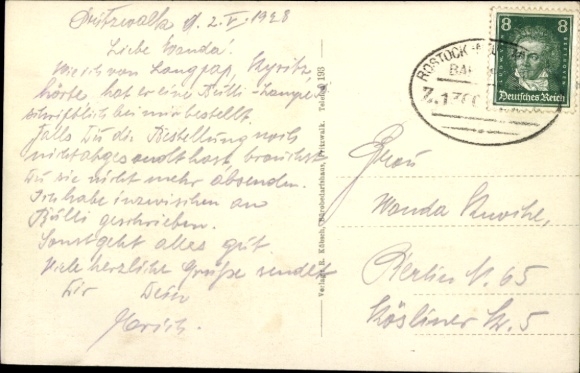 Pritzwalk d. 2.V.1928
Liebe Wanda!
Wie ich von Langpap, Kyritz,
hörte hat er eine Bülli-Lampe
schriftlich bei mir bestellt.
Falls Du die Bestellung noch
nicht abgesandt hast brauchst
Du sie nicht mehr absenden.
Ich habe inzwischen an
Bülli geschrieben.
Sonst geht alles gut
Viele herzliche Grüße sendet
Dir Dein
Verlag R. Kölsch, Bürobedarfshaus, Pritzwalk. Telefon 193
ROSTOCK
BAHNPOST
8 8
Deutsches Reich
Frau
Wanda
Berlin N. 65
Kösliner Str. 5